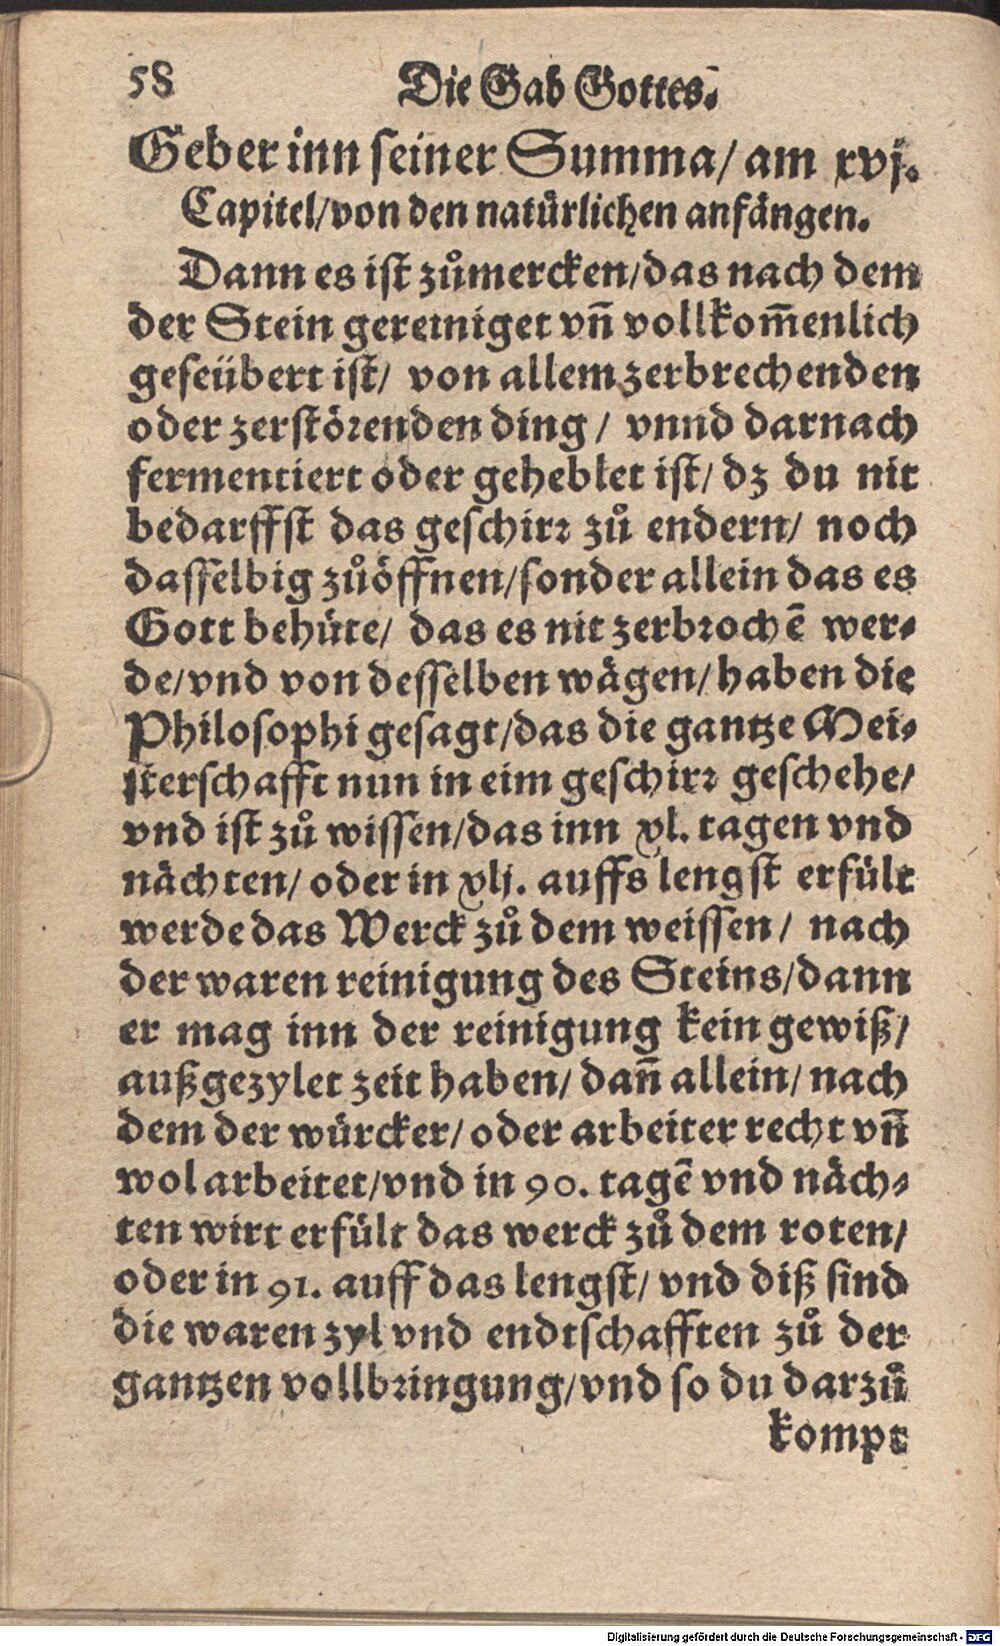 58
Die Gab Gottes.
Geber inn ſeiner Summa/ am xvj.
Capitel/von den natürlichen anfängen.
Dann es iſt zůmercken/das nach dem
der Stein gereiniget vñ vollkom̃enlich
geſeübert iſt/ von allem zerbrechenden
oder zerſtörenden ding/ vnnd darnach
fermentiert oder geheblet iſt/ dz du nit
bedarffſt das geſchirꝛ zů endern/ noch
daſſelbig zůöffnen/ſonder allein das es
Gott behüte/ das es nit zerbꝛochẽ wer⸗
de/vnd von deſſelben wägen/haben die
Philoſophi geſagt/das die gantze Mei⸗
ſterſchafft nun in eim geſchirꝛ geſchehe/
vnd iſt zů wiſſen/das inn xl. tagen vnd
nächten/ oder in xlj. auffs lengſt erfült
werde das Werck zů dem weiſſen/ nach
der waren reinigung des Steins/dann
er mag inn der reinigung kein gewiß/
außgezylet zeit haben/ dañ allein/ nach
dem der würcker/ oder arbeiter recht vñ
wol arbeitet/vnd in 90. tagẽ vnd näch⸗
ten wirt erfült das werck zů dem roten/
oder in 91. auff das lengſt/ vnd diß ſind
die waren zyl vnd endtſchafften zů der
gantzen vollbꝛingung/vnd ſo du darzů
kompt
Digitalisierung gefördert durch die Deutsche Forschungsgemeinschaft - DFG